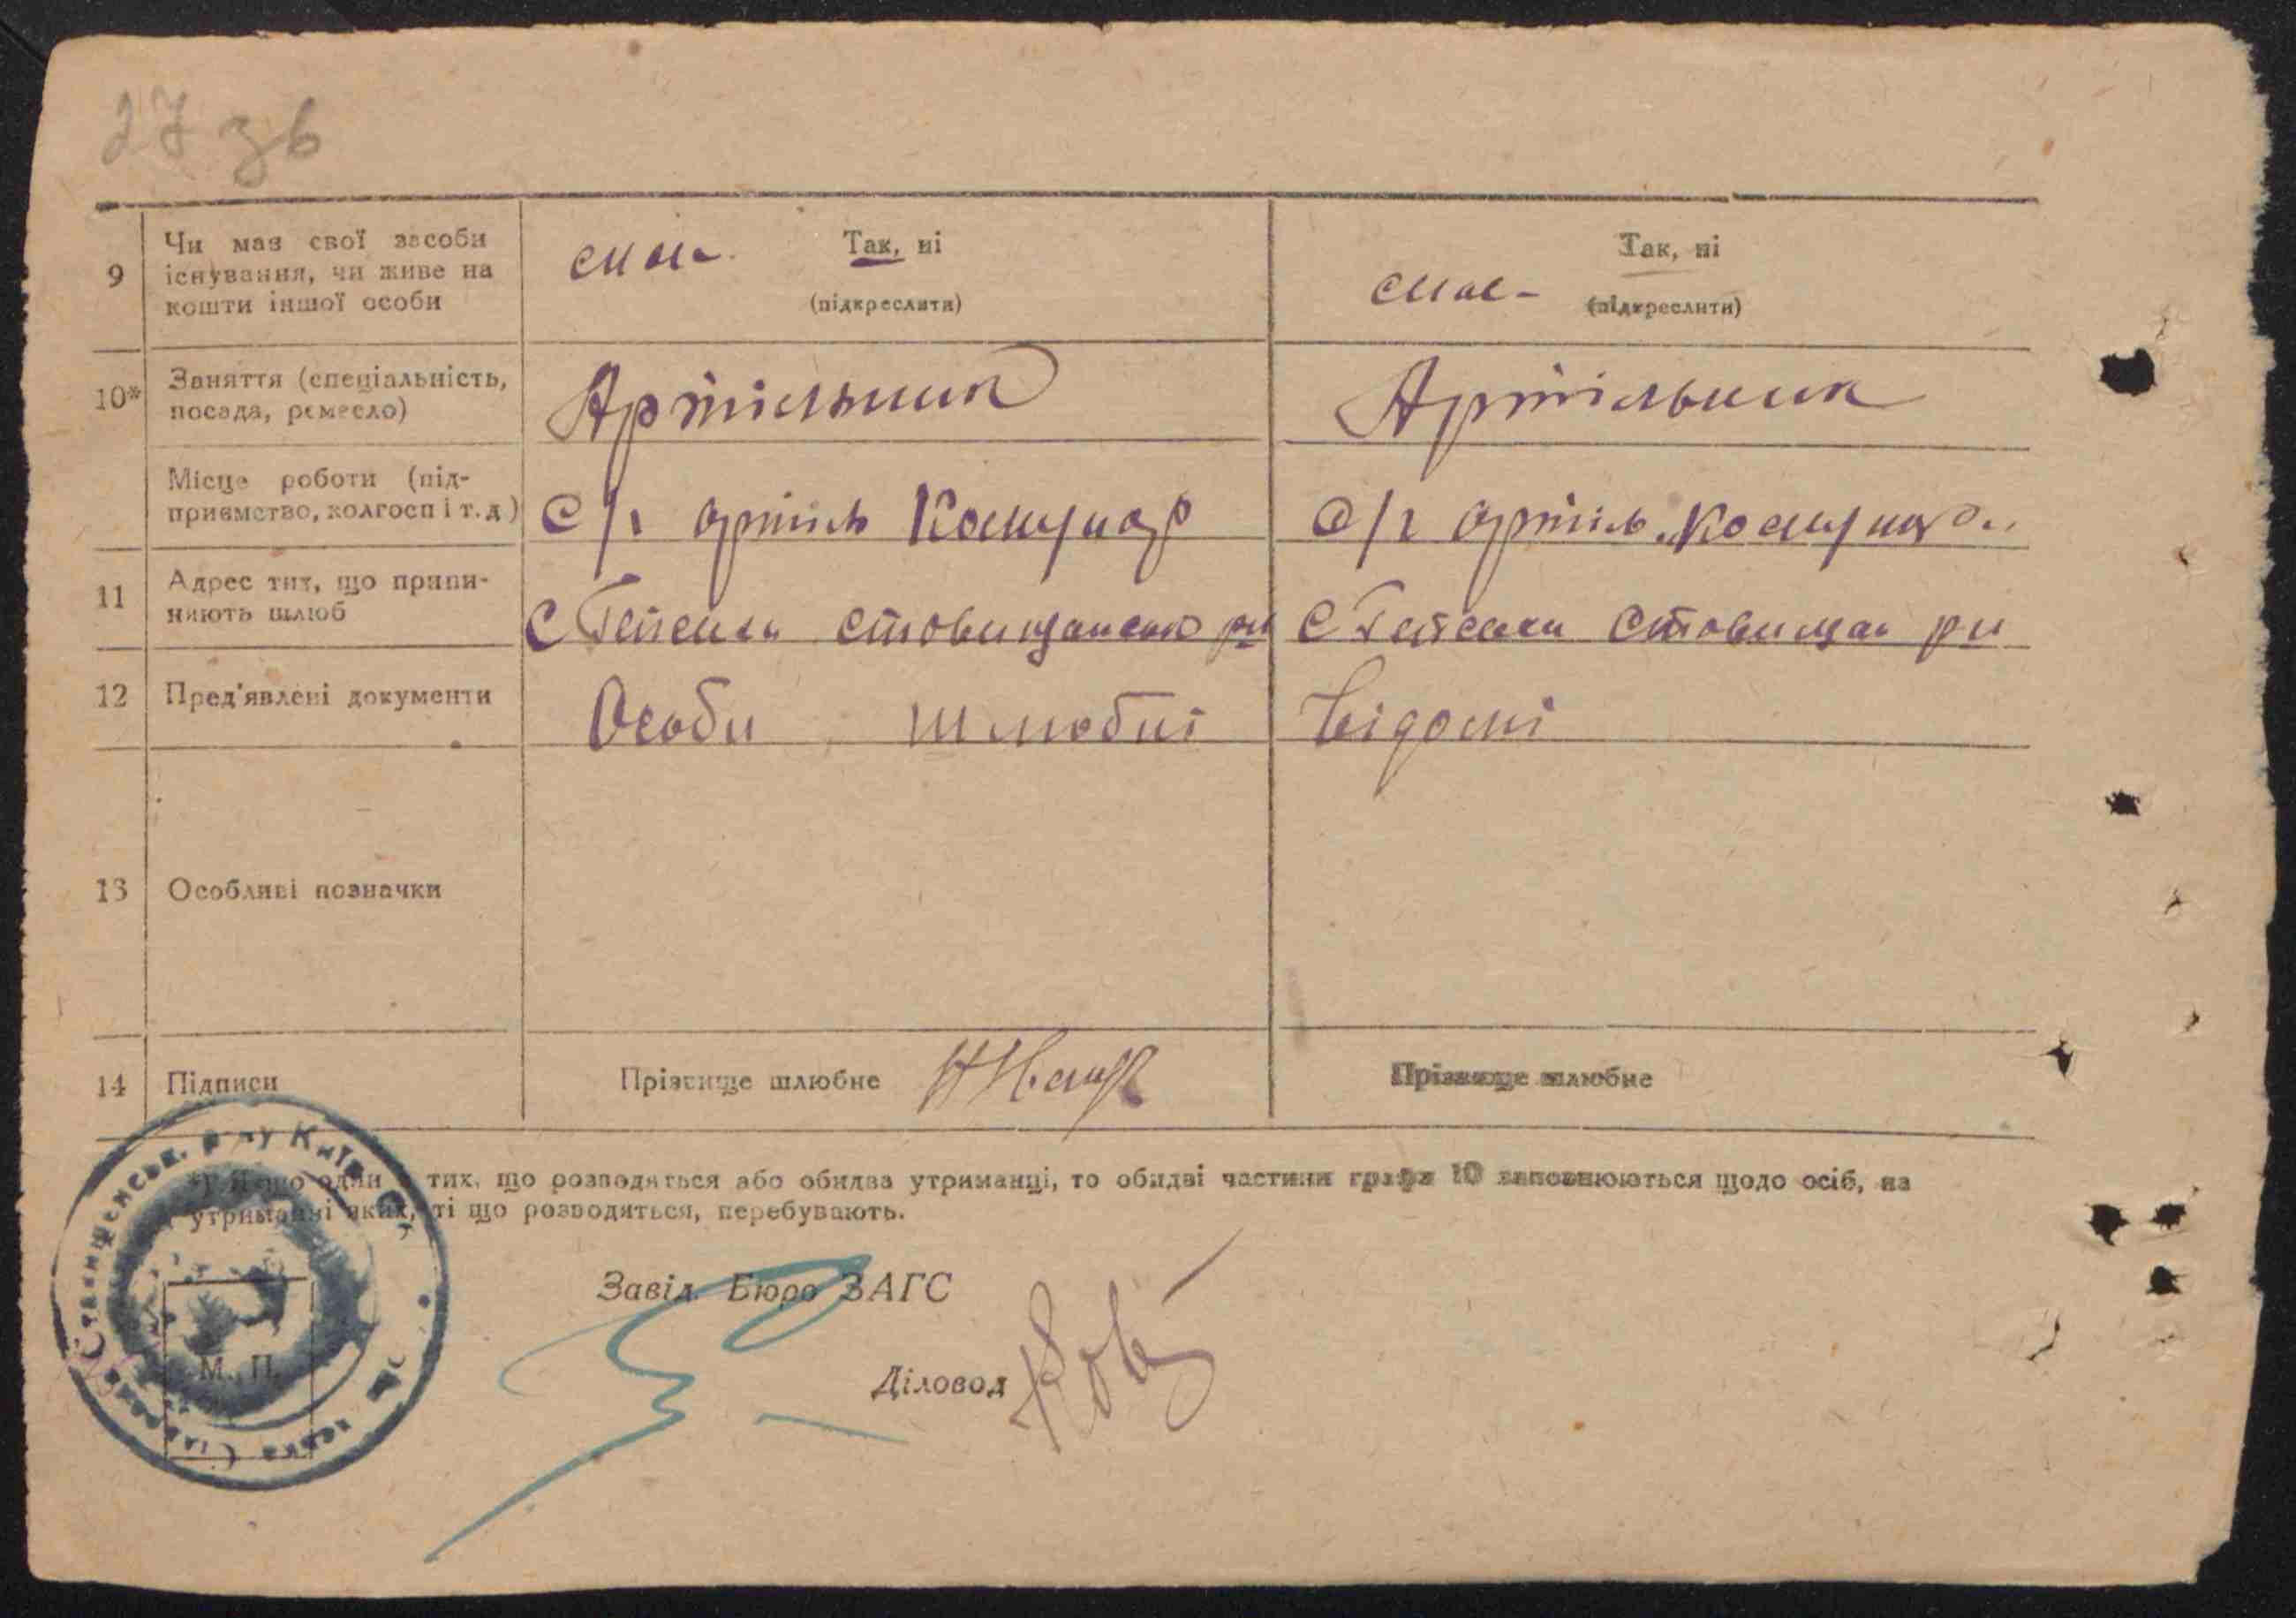 27 зв
9
Чи має свої засоби
існування, чи живе на
кошти іншої особи
Так, ні
(підкреслити)
має
Так, ні
(підкреслити)
10*
Заняття (спеціальність,
посада, ремесло)
Артільник
Артільник
Місце роботи (під-
приємство, колгосп і т.д)
С/г артіль Комунар
С/г артіль „Комунар"
11
Адрес тих, що припи-
няють шлюб
с
с
12
Пред'явлені документи
Особи шлюбні
відомі
13
Особливі позначки
14
Підписи
Прізвище шлюбне
Прізвище шлюбне
*) Якщо один з тих, що розводяться або обидва утриманці, то обидві частини графи 10 заповнюються щодо осіб, на
утриманні яких, ті що розводяться, перебувають.
Завід. Бюро ЗАГС
М. П.
Діловод